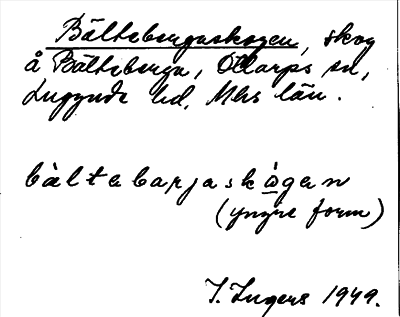 Bältebergaskogen, skog
å Bälteberga, Ottarps sn,
Luggude hd, Mhs län.
bàltabarjaskògan
(yngre form)
I. Ingers 1949.